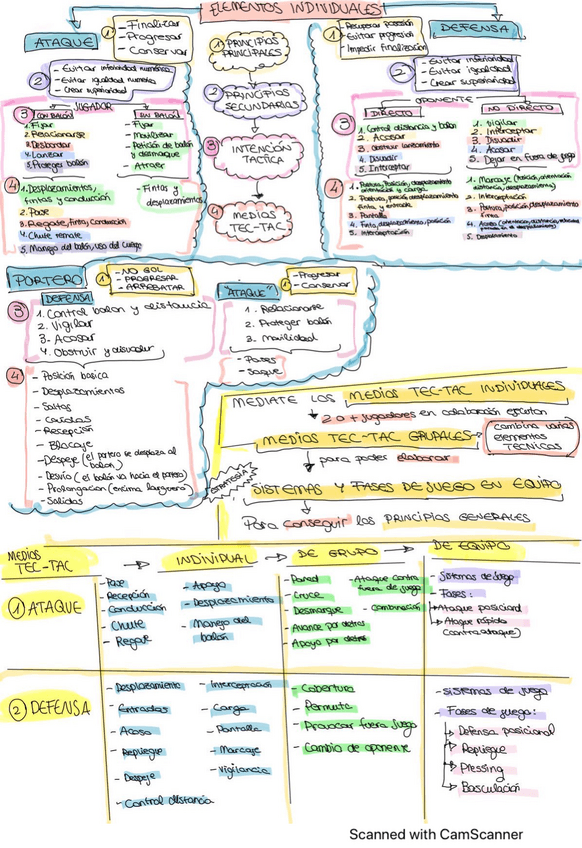 ELEMENTOS INDIVIDUALES
ATAQUE
1 - Finalizar
- Progresar
- Conservar
2 - Evitar inferioridad numérica
- Evitar igualdad numerica
- Crear superioridad
JUGADOR
3 CON BALÓN
1. Fijar
2. Relacionarse
3. Desbordar
4. Lanzar
5. Proteger balón
SIN BALÓN
- Fijar
- Movilizar
- Petición de balón y desmarque
- Atraer
4 1. Desplazamientos, fintas y conducción
2. Pase
3. Regate, Finta, Conducción
4. Chute remate
5. Manejo del balón, uso del cuerpo
- Fintas y desplazamientos
1 PRINCIPIOS PRINCIPALES
2 PRINCIPIOS SECUNDARIOS
3 INTENCIÓN TACTICA
4 MEDIOS TEC-TAC
DEFENSA
1 - Recuperar posesión
- Evitar progresión
- Impedir finalización
2 - Evitar inferioridad
- Evitar igualdad
- Crear superioridad
OPONENTE
3 DIRECTO
1. Control distancia y balón
2. Acosar
3. Obstruir lanzamiento
4. Disuadir
5. Interceptar
NO DIRECTO
1. Vigilar
2. Interceptar
3. Disuadir
4. Acosar
5. Dejar en fuera de juego
4 1. Postura, Posición, desplazamiento, orientación y carga
2. Postura, posición, desplazamiento, finta y entrada
3. Pantalla
4. Finta, desplazamiento, posición
5. Interceptación
1. Marcaje (Posición, orientación, distancia, desplazamiento)
2. Interceptación
3. Postura, posición, desplazamiento finta
5. Desplazamiento
PORTERO
1 - NO GOL
- PROGRESAR
- ARREBATAR
DEFENSA
3 1. Control balon y distancia
2. Vigilar
3- Acosar
4. Obstruir y disuadir
4 - Posición basica
- Desplazamientos
- Saltos
- Caidas
- Recepción
- Blocaje
- Despeje (el portero se desplaza al balon)
- Desvio (el balón va hacia el portero)
- Prolongacion (encima larguero)
- Salidas
"ATAQUE"
1 - Progresar
- Conservar
1. Relacionarse
2. Proteger balón
3. Movilidad
- Pases
- Saque
MEDIATE LOS MEDIOS TEC-TAC INDIVIDUALES
2 o + jugadores en colaboración ejecutan
MEDIOS TEC-TAC GRUPALES
combina varios elementos TECNICOS
para poder elaborar
ESTRATEGIA
SISTEMAS Y FASES DE JUEGO EN EQUIPO
Para conseguir los PRINCIPIOS GENERALES
MEDIOS TEC-TAC
INDIVIDUAL
DE GRUPO
DE EQUIPO
1 ATAQUE
- Pase
- Recepción
- Conducción
- Chute
- Regate
- Apoyo
- Desplazamiento
- Manejo del balón
- Pared
- Cruce
- Desmarque
- Avance por detrás
- Apoyo por detrás
- Ataque contra fuera de juego
- Combinación
- Sistemas de juego
- Fases:
Ataque posicional
Ataque rápido (contraataque)
2 DEFENSA
- Desplazamiento
- Entradas
- Acoso
- Repliegue
- Despeje
- Control distancia
- Interceptación
- Carga
- Pantalla
- Marcaje
- Vigilancia
- Cobertura
- Permuta
- Provocar fuera juego
- Cambio de oponente
- Sistemas de juego
- Fases de juego:
Defensa posicional
Repliegue
Pressing
Basculación
Scanned with CamScanner